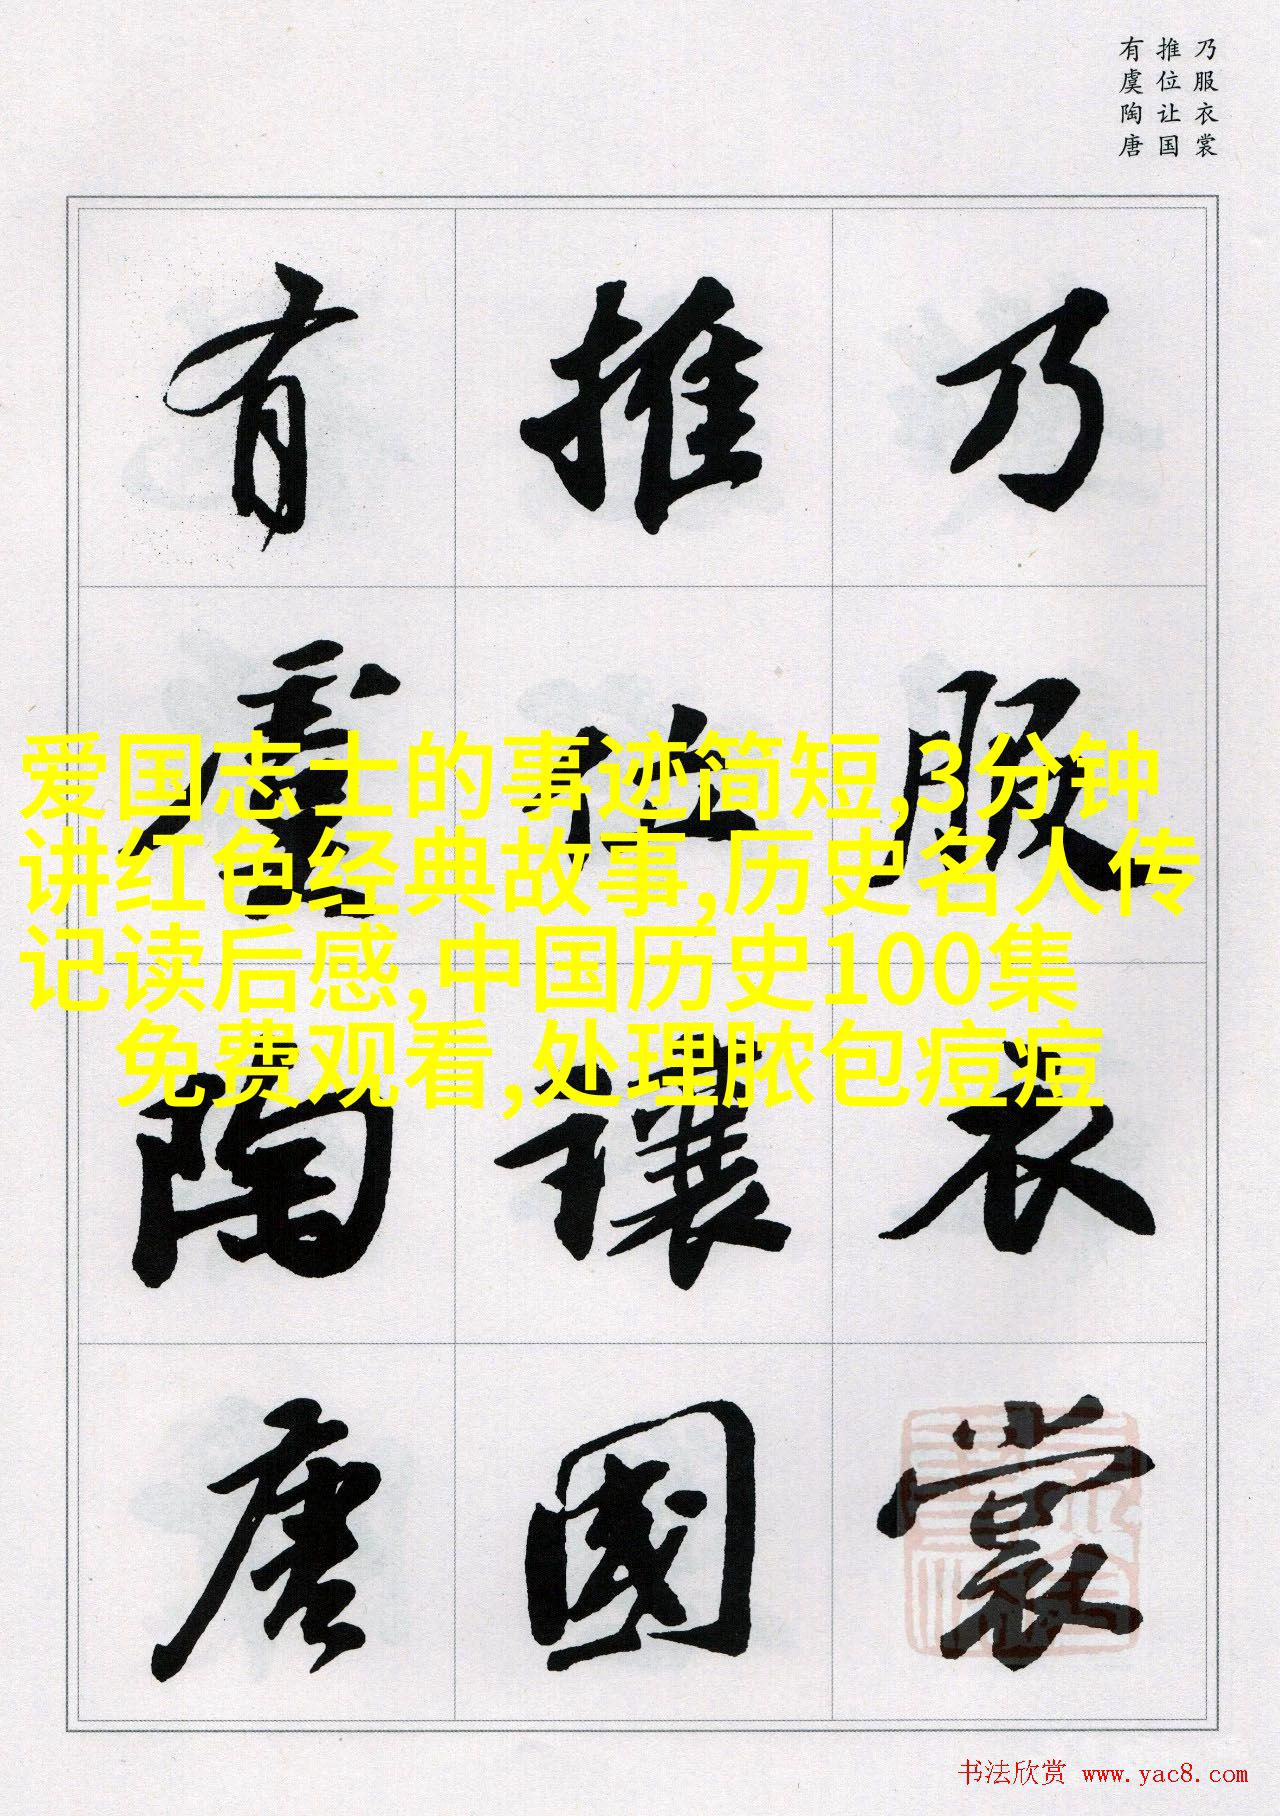 乃服衣裳
推位让国
有虞陶唐
乃服衣裳
推位讓國
有虞陶唐
爱国志士的事迹简短,3分钟
讲红色经典故事,历史名人传
记读后感,中国历史100集
免费观看,处理脓包痘痘
书法欣赏 www.yac8.com